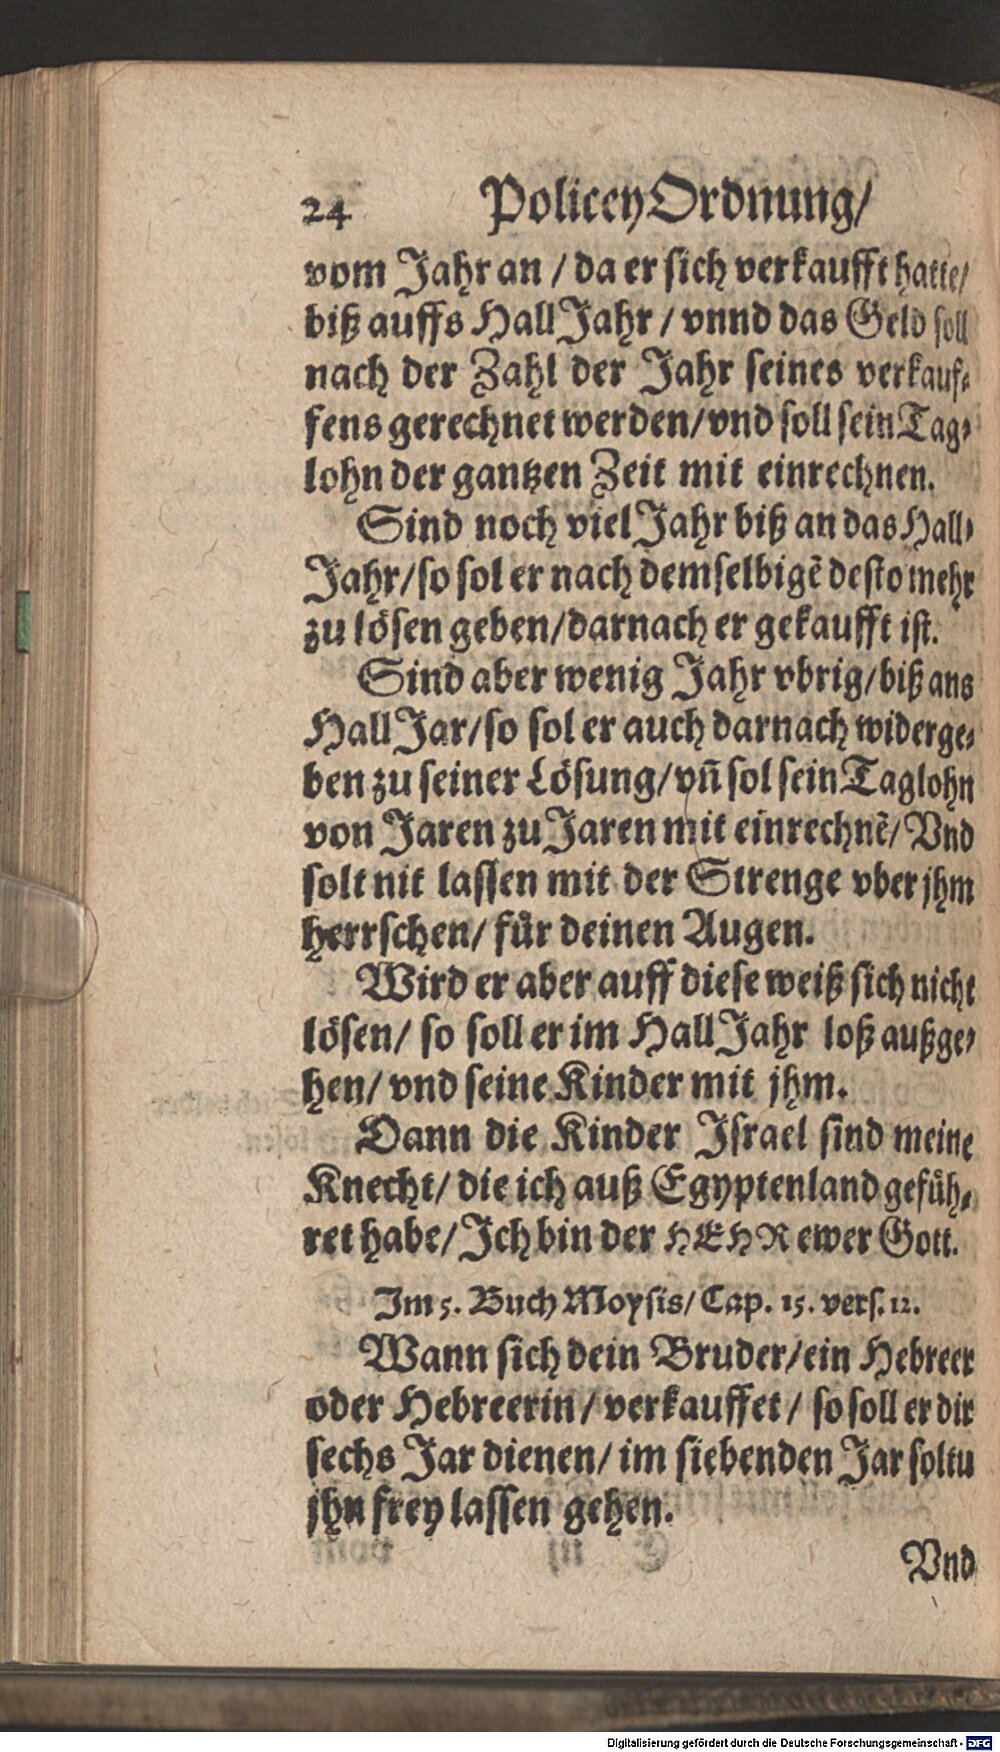 24 Policey Ordnung/
vom Jahr an / da er sich verkaufft hatte/
biß auffs Hall Jahr / vnnd das Geld soll
nach der Zahl der Jahr seines verkauf⸗
fens gerechnet werden/vnd soll sein Tag⸗
lohn der gantzen Zeit mit einrechnen.
Sind noch viel Jahr biß an das Hall⸗
Jahr/so sol er nach demselbigẽ desto mehr
zu lösen geben/darnach er gekaufft ist.
Sind aber wenig Jahr vbrig/biß ans
Hall Jar/so sol er auch darnach widerge⸗
ben zu seiner Lösung/vñ sol sein Taglohn
von Jaren zu Jaren mit einrechnẽ/ Vnd
solt nit lassen mit der Strenge vber jhm
herrschen/ für deinen Augen.
Wird er aber auff diese weiß sich nicht
lösen/ so soll er im Hall Jahr loß außge⸗
hen/ vnd seine Kinder mit jhm.
Dann die Kinder Israel sind meine
Knecht/ die ich auß Egyptenland gefüh⸗
ret habe/ Ich bin der HEHR ewer Gott.
Im 5. Buch Moysis/ Cap. 15. vers. 12.
Wann sich dein Bruder/ein Hebreer
oder Hebreerin/ verkauffet / so soll er dir
sechs Jar dienen/ im siebenden Jar soltu
jhn frey lassen gehen.
Vnd
Digitalisierung gefördert durch die Deutsche Forschungsgemeinschaft - DFG